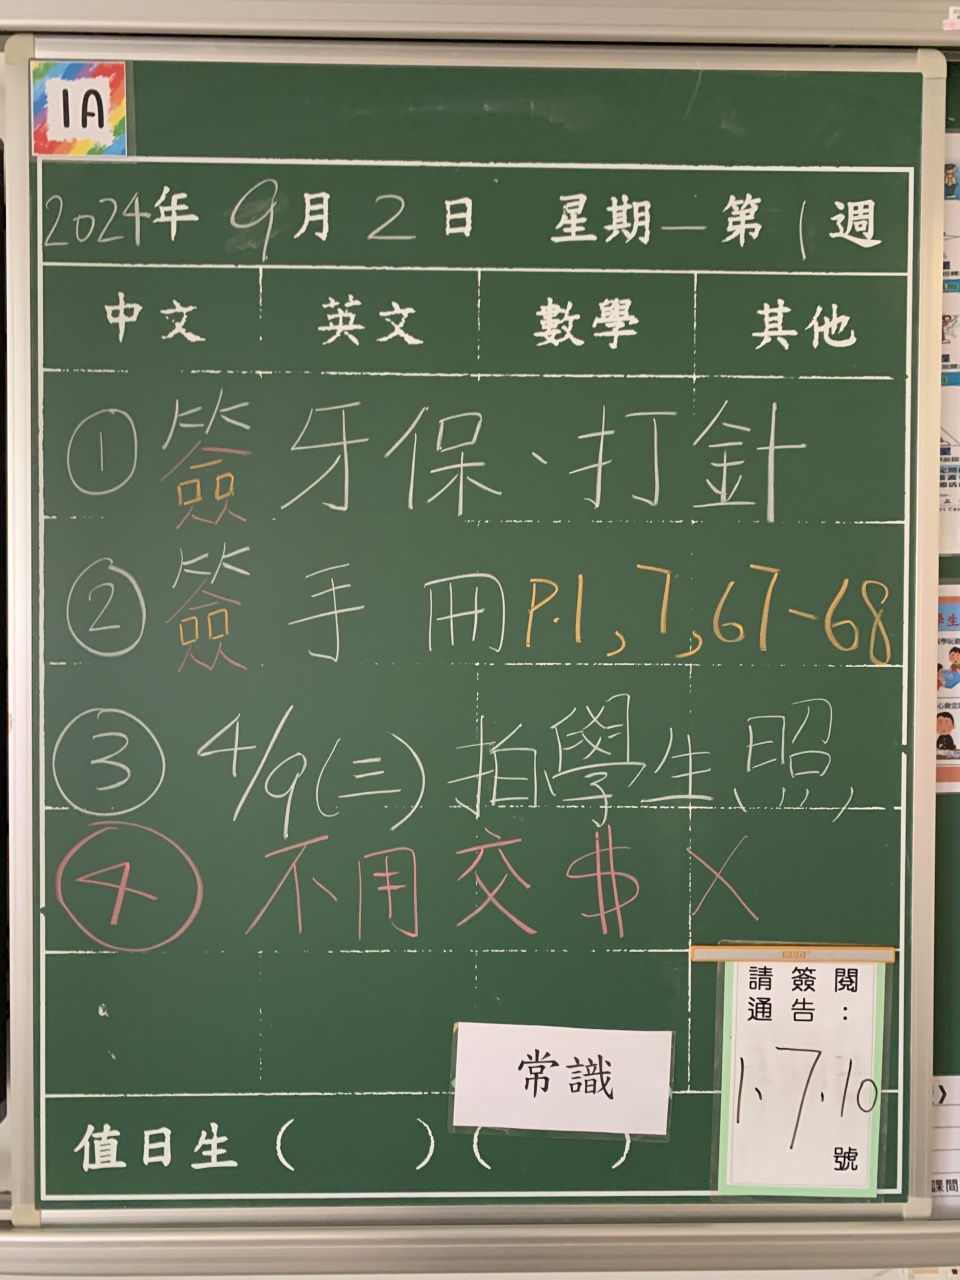 1A
2024年 9月 2日 星期一 第1週
中文 英文 數學 其他
① 簽 牙保、打針
② 簽 手冊 P.1, 7, 67-68
③ 4/9(三) 拍學生照
④ 不用交$ X
請簽閱
通告：
1、7、10
號
常識
值日生 ( ) ( )